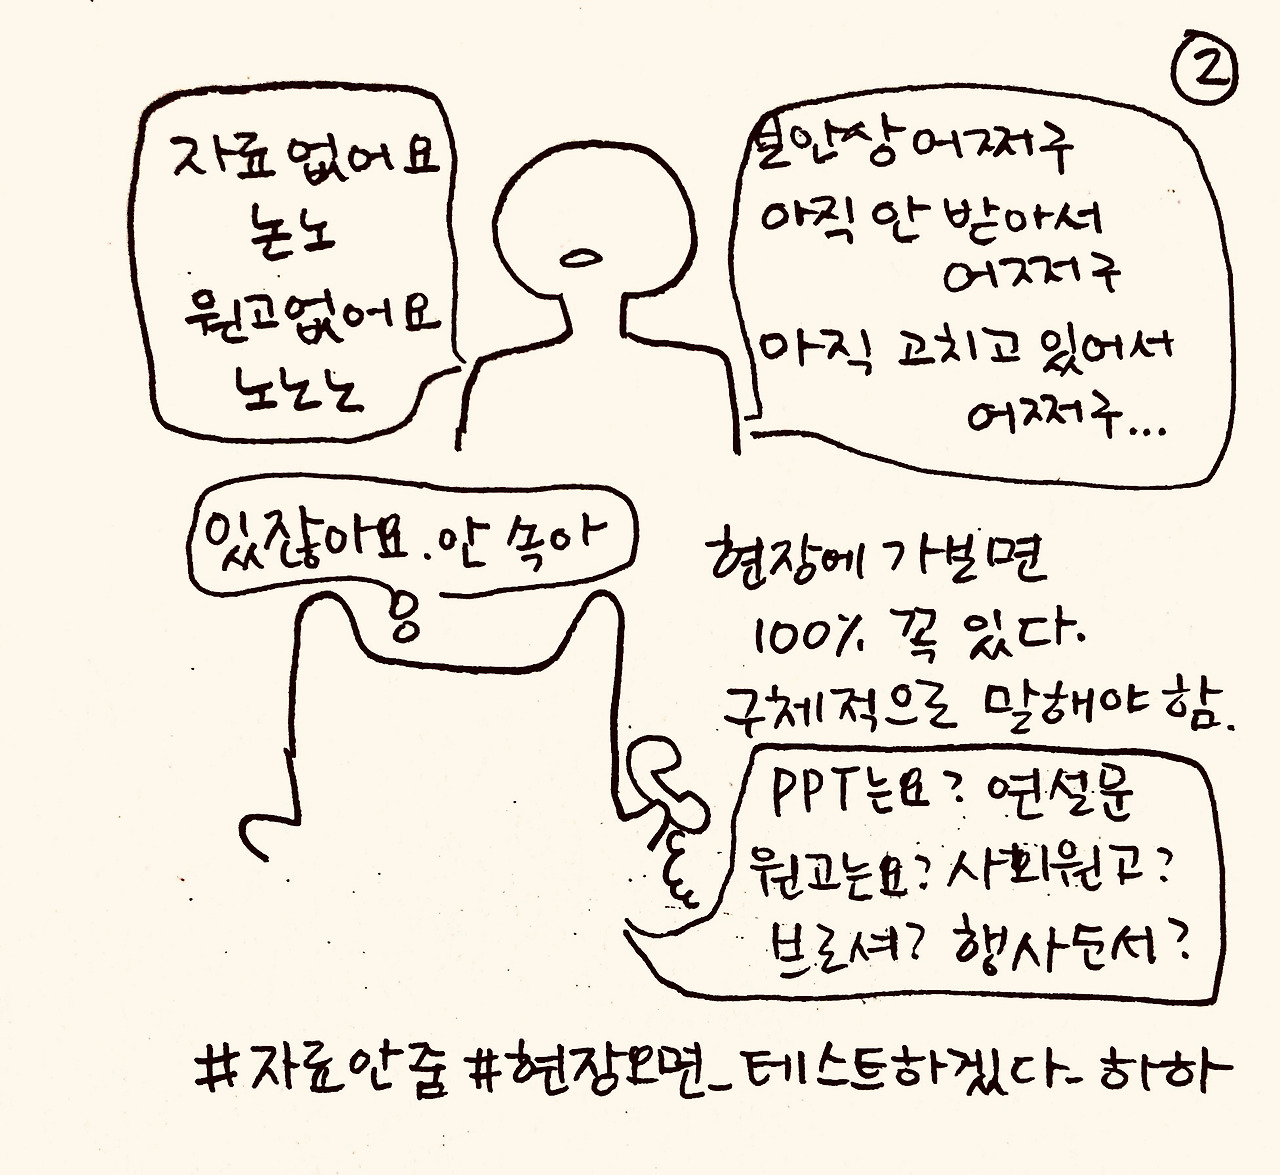 ②
자료 없어요
논노
원고없어요
노논논
보안상 어쩌구
아직 안 받아서
어쩌구
아직 고치고 있어서
어쩌구...
있잖아요. 안 속아
현장에 가보면
100% 꼭 있다.
구체적으로 말해야 함.
PPT는요? 연설문
원고는요? 사회원고?
브로셔? 행사순서?
#자료안줌 #현장오면_테스트하겠다_하하